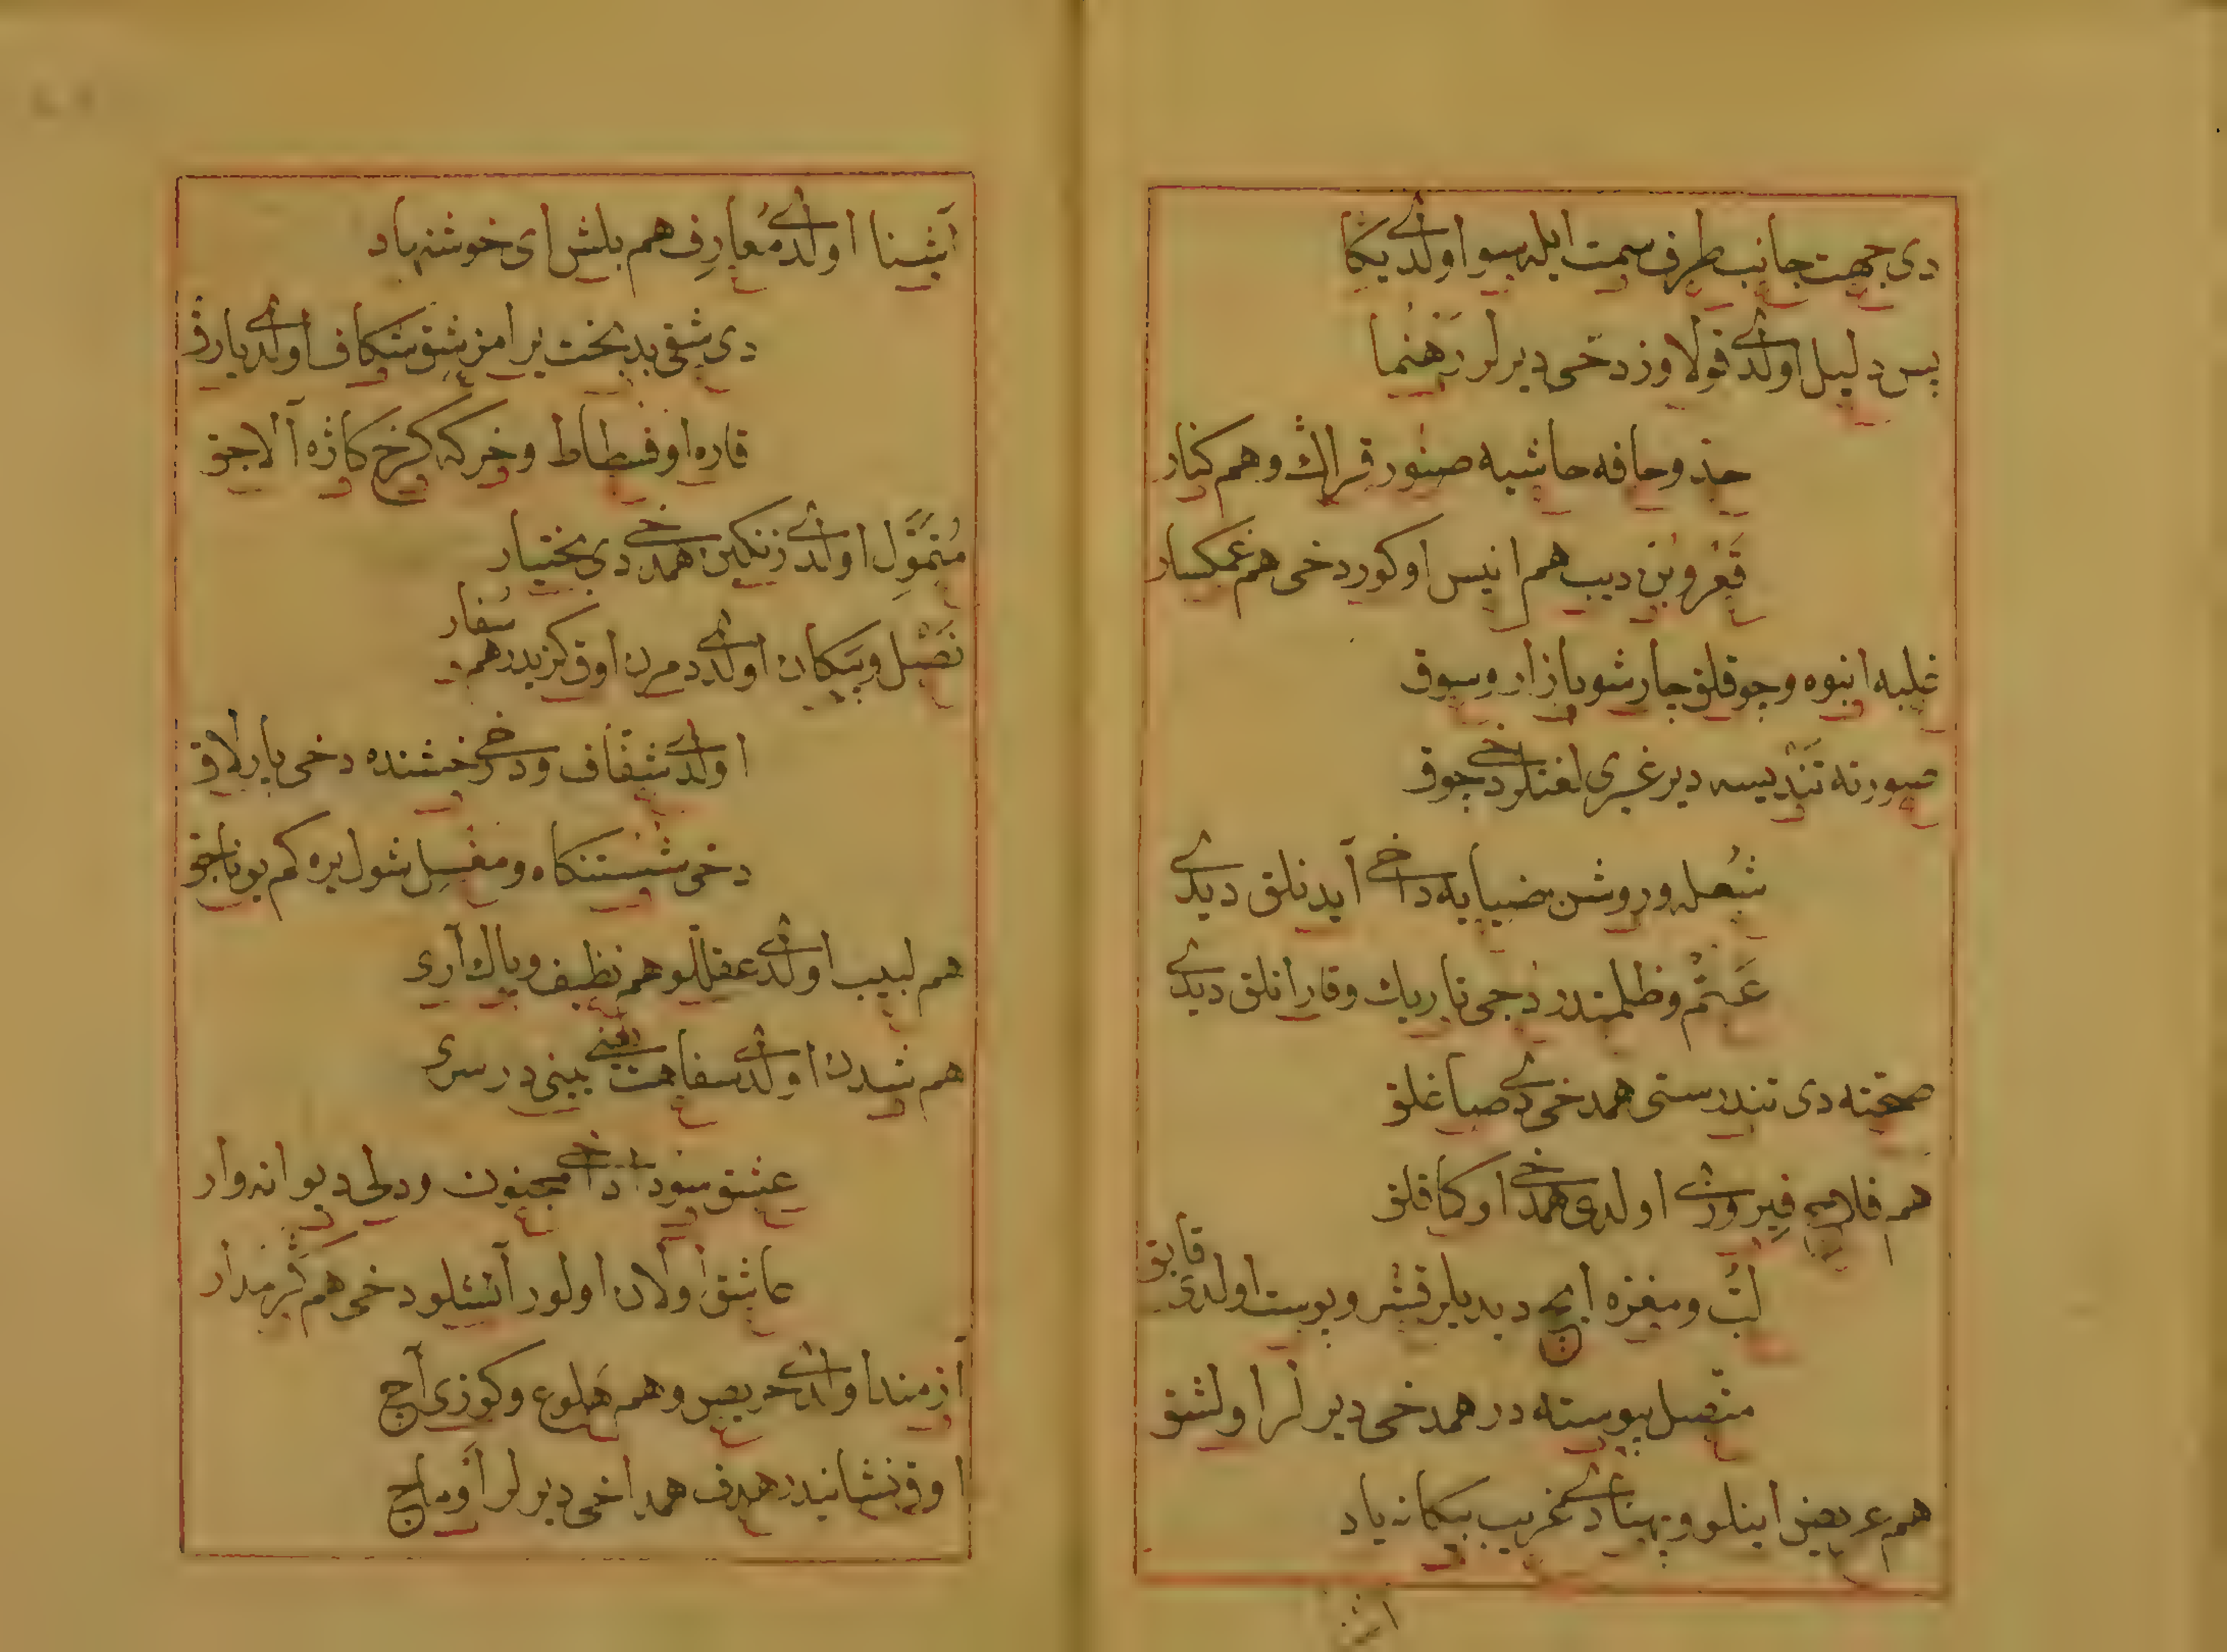 دی جهت جانب طرف سمت ایله سو اولدی یكا
پس دلیل اولدی قولاوز دخی دیرلر رهنما
حد و حافه حاشیه صنور قراڭ و هم كنار
قعر و بُن دیب هم انیس اوكور دخی هم غمكسار
غلبه انبوه و جوقلق چارشو بازار و سوق
صورته تندیسه دیر غیری لغتلر دخی چوق
شعله و روشن ضیایه داخی آیدنلق دیدی
عتم و ظلمتدر دجی تاریك و قارانلق دیدی
صحته دی تندرستی همدخی دی صاغلق
هم فلاحه فیروزی اولدی همدخی اوكاقلق
لبّ و مغزه ایچ دیدیلر قشر و پوست اولدی قابق
متّصل پیوسته در همدخی دیرلر اولشق
هم عریض اینلو و پهنادی غریب بیكانه یاد
اشنا
آشنا اولدی معارف هم بلش ای خوشنهاد
دی شقی بدبخت یرامز شق شكاف اولدی یارق
قاره او فسطاط و خركه كرخ كازه آلاجق
متموّل اولدی زنكین همدخی دی بختیار
نصل و پیكان اولدی دمرن اوق كزیدر هم سُفار
اولدی شفّاف و دخی رخشنده دخی پارلاق
دخی شستنكاه و مغسل شول یره كم یوناجق
هم لبیب اولدی عقللو هم نظیف و پاك آری
هم شدن اولدی سفاهت یعنی بینی در سری
عشق سودا داخی مجنون و دلی دیوانه وار
عاشق اولان اولور آتشلو دخی هم كرمدار
آزمند اولدی حریص و هم هلوع و كوزی آچ
اوق نشانیدر هدف همداخی دیرلر اوماج